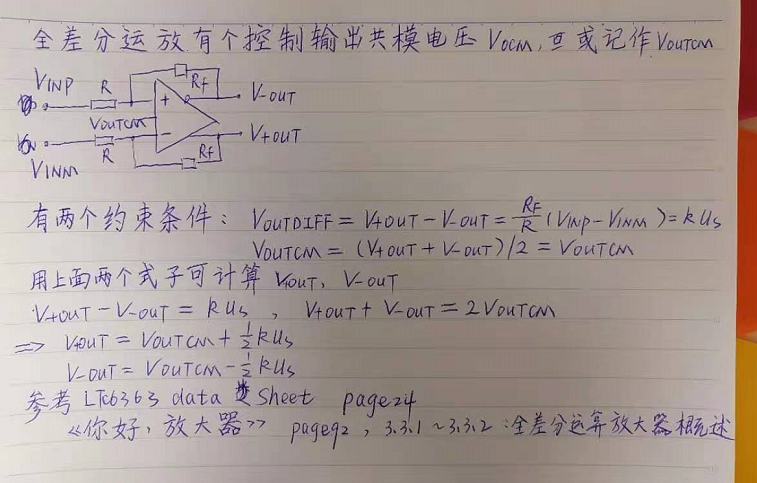 全差分运放有个控制输出共模电压 VOCM, 或记作 VOUTCM
VINP R Rf V-OUT
VOUTCM
+
-
R Rf V+OUT
VINM
有两个约束条件: VOUTDIFF = V+OUT - V-OUT = RF/R (VINP - VINM) = kUs
VOUTCM = (V+OUT + V-OUT)/2 = VOUTCM
用上面两个式子可计算 V+OUT, V-OUT
V+OUT - V-OUT = kUs , V+OUT + V-OUT = 2VOUTCM
=> V+OUT = VOUTCM + 1/2 kUs
V-OUT = VOUTCM - 1/2 kUs
参考 LTC6363 data Sheet page24
《你好,放大器》 page92, 3.3.1~3.3.2:全差分运算放大器概述